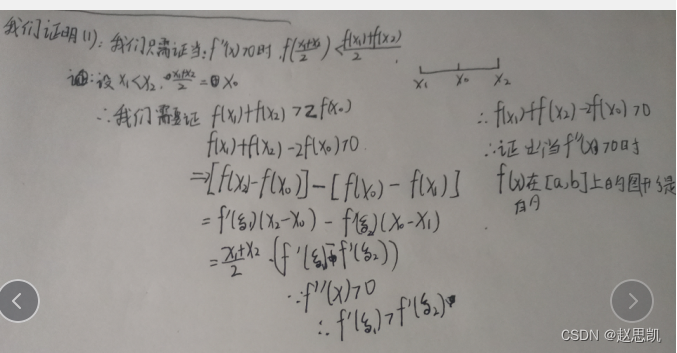 我们证明(1): 我们只需证当: f''(x)>0时, f(\frac{x_1+x_2}{2}) < \frac{f(x_1)+f(x_2)}{2}.
证: 设 x_1<x_2, \frac{x_1+x_2}{2} = x_0
x_1 x_0 x_2
∴我们需要证 f(x_1)+f(x_2)>2f(x_0)
f(x_1)+f(x_2)-2f(x_0)>0.
⇒[f(x_2)-f(x_0)]-[f(x_0)-f(x_1)]
=f'(ξ_1)(x_2-x_0)-f'(ξ_2)(x_0-x_1)
=\frac{x_1+x_2}{2}·(f'(ξ_1)-f'(ξ_2))
∵f''(x)>0
∴f'(ξ_1)>f'(ξ_2)
∴f(x_1)+f(x_2)-2f(x_0)>0
∴证出当f''(x)>0时
f(x)在[a,b]上的图形是
凹
CSDN @赵思凯